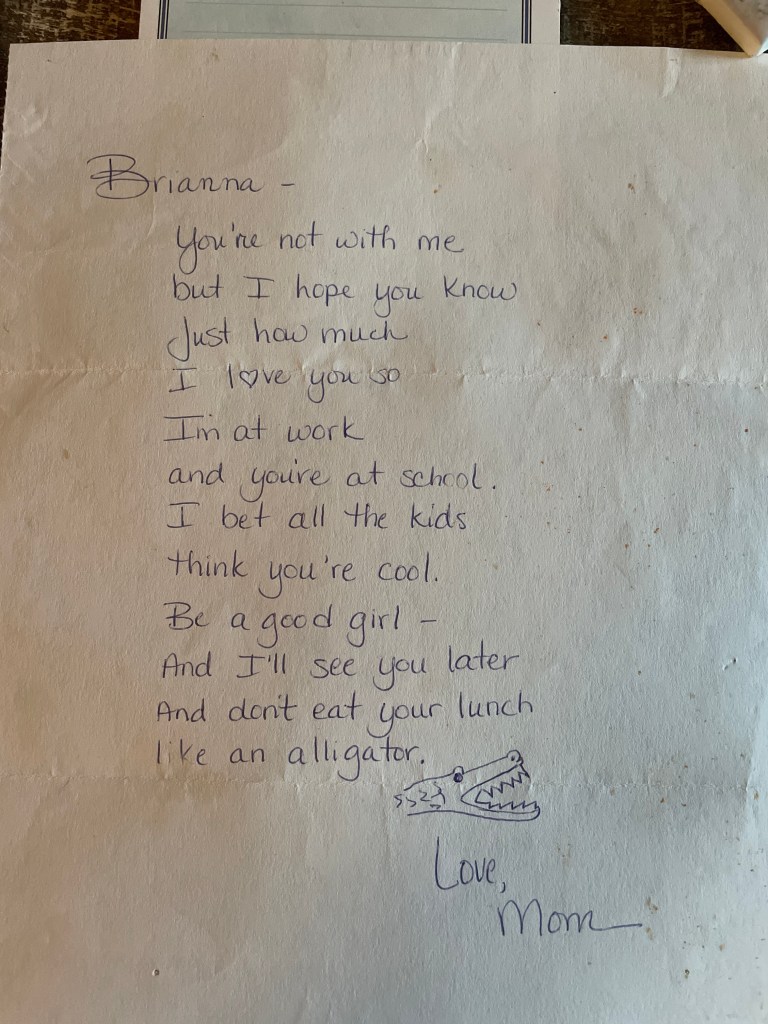 Brianna -
You're not with me
but I hope you know
Just how much
I l♡ve you so
I'm at work
and you're at school.
I bet all the kids
think you're cool.
Be a good girl -
And I'll see you later
And don't eat your lunch
like an alligator.
Love,
Mom